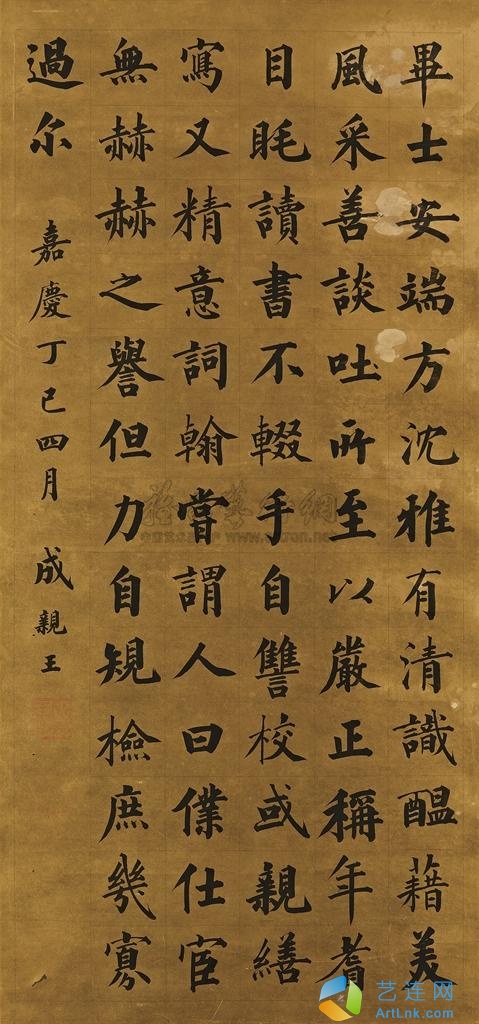 畢士安端方沈雅有清識醞藉美
風采善談吐所至以嚴正稱年耆
目眊讀書不輟手自讐校或親繕
寫又精意詞翰嘗謂人曰僕仕宦
無赫赫之譽但力自䂓檢庶幾寡
過尔 嘉慶丁巳四月 成親王
艺连网
ArtLnk.com